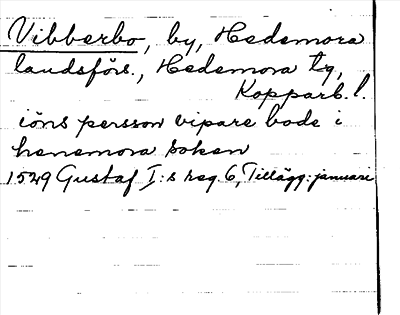 Vibberbo, by, Hedemora
landsförs., Hedemora tg,
Kopparb. l.
iöns persson vipare bode i
henemora soken
1549 Gustaf I:s reg. 6, Tillägg: januari